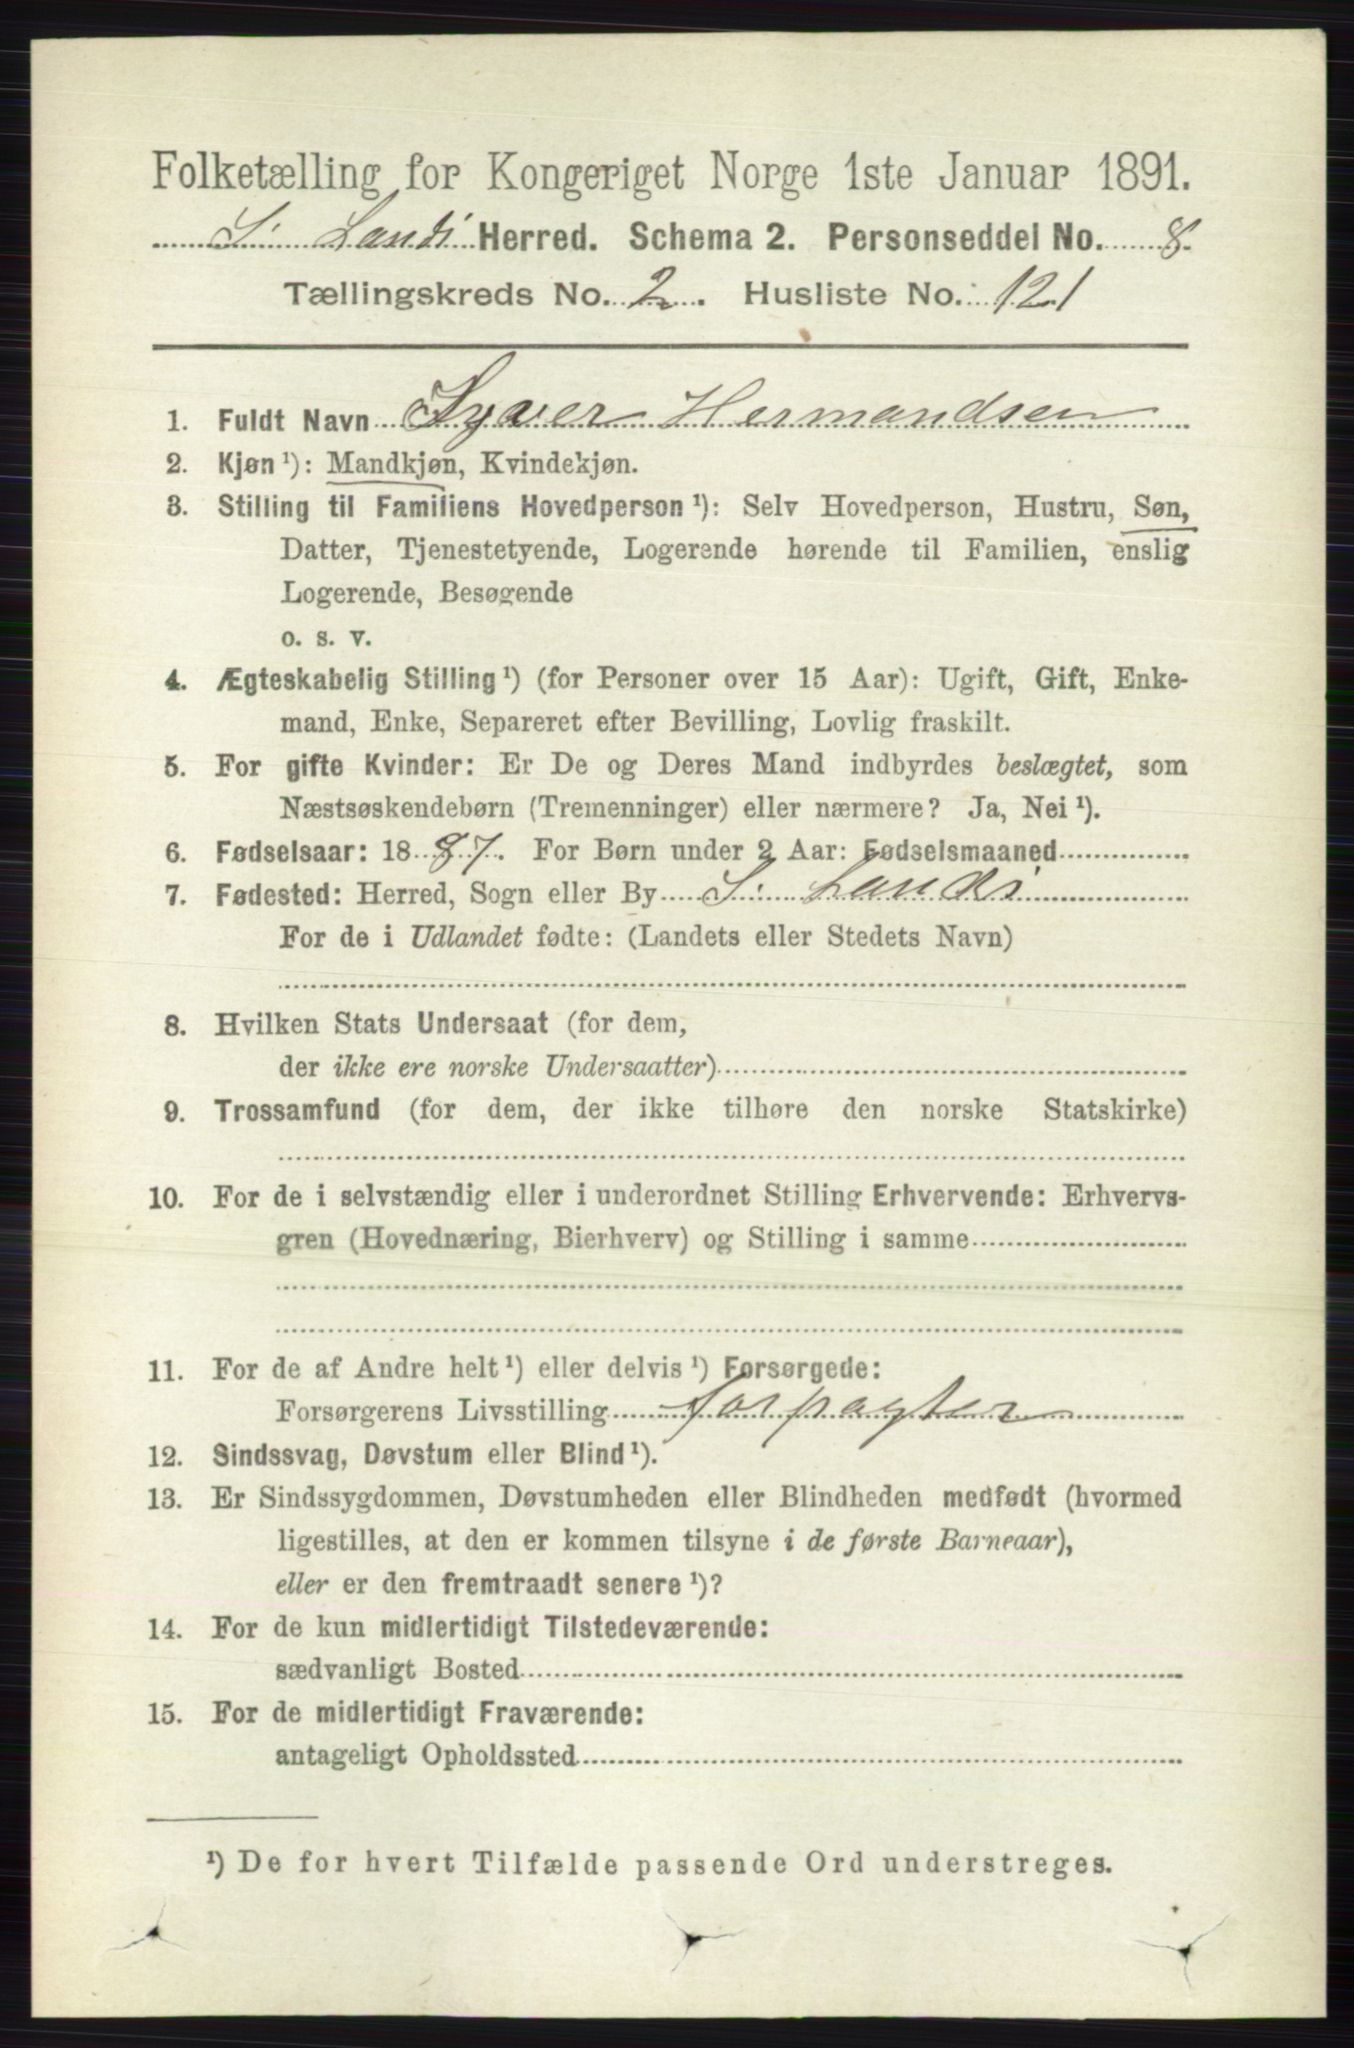 Folketælling for Kongeriget Norge 1ste Januar 1891.
S. Lands Herred. Schema 2. Personseddel No. 8.
Tællingskreds No. 2. Husliste No. 121
1. Fuldt Navn Syver Hermandsen
2. Kjøn ¹): Mandkjøn, Kvindekjøn.
3. Stilling til Familiens Hovedperson ¹): Selv Hovedperson, Hustru, Søn,
Datter, Tjenestetyende, Logerende hørende til Familien, enslig
Logerende, Besøgende
o. s. v.
4. Ægteskabelig Stilling ¹) (for Personer over 15 Aar): Ugift, Gift, Enke-
mand, Enke, Separeret efter Bevilling, Lovlig fraskilt.
5. For gifte Kvinder: Er De og Deres Mand indbyrdes beslægtet, som
Næstsøskendebørn (Tremenninger) eller nærmere? Ja, Nei ¹).
6. Fødselsaar: 1887. For Børn under 2 Aar: Fødselsmaaned
7. Fødested: Herred, Sogn eller By S. Lands
For de i Udlandet fødte: (Landets eller Stedets Navn)
8. Hvilken Stats Undersaat (for dem,
der ikke ere norske Undersaatter)
9. Trossamfund (for dem, der ikke tilhøre den norske Statskirke)
10. For de i selvstændig eller i underordnet Stilling Erhvervende: Erhvervs-
gren (Hovednæring, Bierhverv) og Stilling i samme
11. For de af Andre helt ¹) eller delvis ¹) Forsørgede:
Forsørgerens Livsstilling forpagter
12. Sindssvag, Døvstum eller Blind ¹).
13. Er Sindssygdommen, Døvstumheden eller Blindheden medfødt (hvormed
ligestilles, at den er kommen tilsyne i de første Barneaar),
eller er den fremtraadt senere ¹)?
14. For de kun midlertidigt Tilstedeværende:
sædvanligt Bosted
15. For de midlertidigt Fraværende:
antageligt Opholdssted
¹) De for hvert Tilfælde passende Ord understreges.